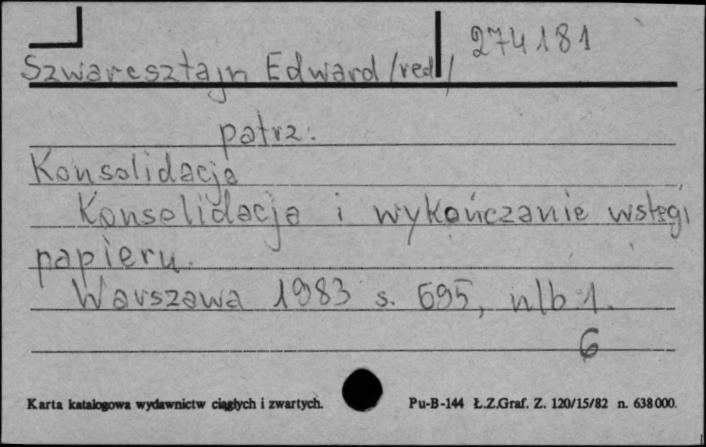 274181
Szwarcsztajn Edward /red/
patrz:
Konsolidacja
Konsolidacja i wykończanie wstęgi
papieru.
Warszawa 1983 s. 695, nlb 1.
6
Karta katalogowa wydawnictw ciągłych i zwartych. Pu-B-144 Ł.Z.Graf. Z. 120/15/82 n. 638000.